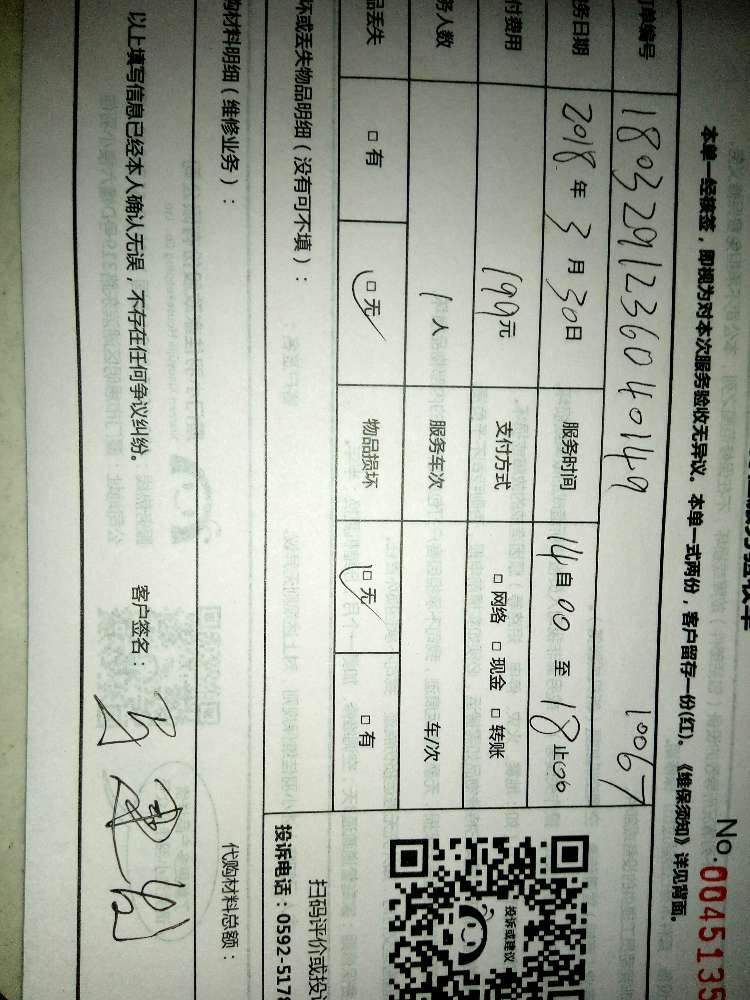 No.0045135
本单一经接签，即视为对本次服务验收无异议。本单一式两份，客户留存一份(红)。《维保须知》详见背面。
单编号 18032912360401149 10067
务日期 2018年3月30日 服务时间 14自00至18止00
付费用 199元 支付方式 □网络 □现金 □转账
务人数 1人 服务车次 车/次
品丢失 □有 □无 物品损坏 □无 □有
坏或丢失物品明细（没有可不填）：
购材料明细（维修业务）：
代购材料总额：
以上填写信息已经本人确认无误，不存在任何争议纠纷。
客户签名：
投诉或建议
扫码评价或投
投诉电话：0592-5178